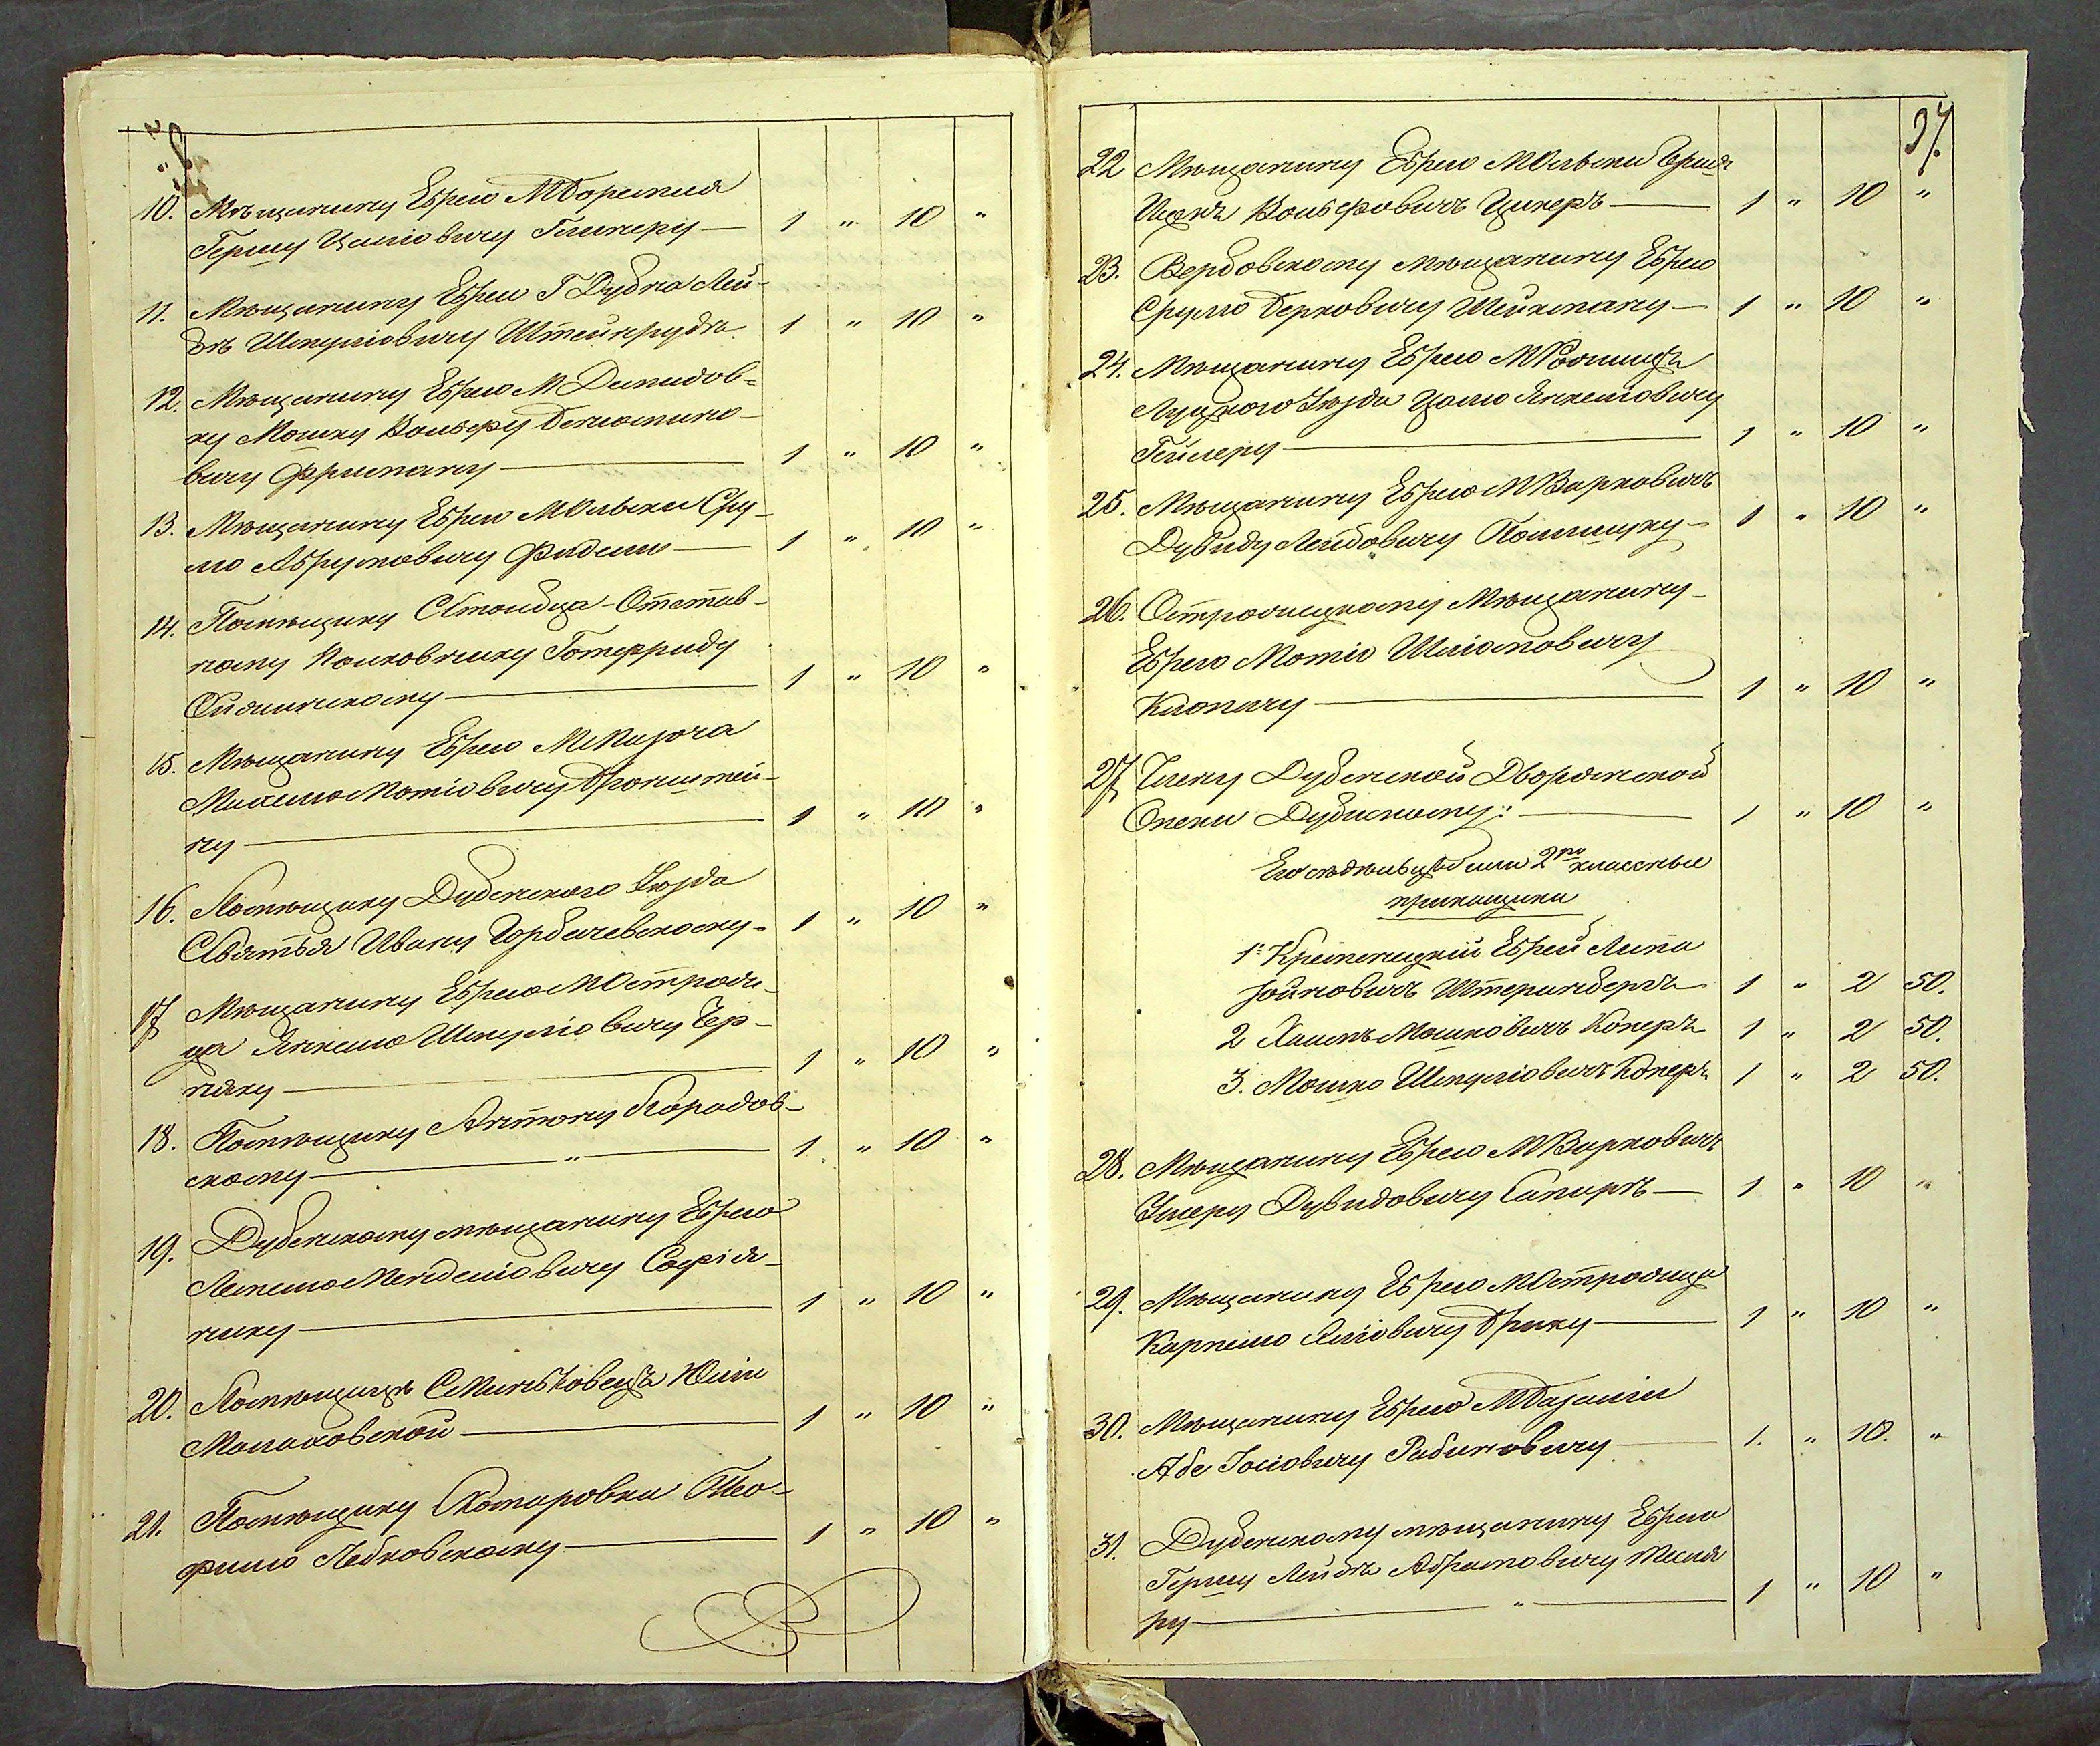 10. Мѣщанину Еврею М Боремля
Гершу Цалiовичу Глинеру — 1 " 10 "
11. Мѣщанину Еврею Г Дубна Лей-
бѣ Шмулiовичу Штейнгрудъ 1 " 10 "
12. Мѣщанину Еврею М Демидов=
ку Мошку Вольфу Бенюмино-
вичу Фришману — 1 " 10 "
13. Мѣщанину Еврею М Олыки Сру-
лю Абрумовичу Фиделю — 1 " 10 "
14. Помѣщику С Столбца - Отстав-
ному Полковнику Готфриду
— 1 " 10 "
15. Мѣщанину Еврею М Мизоча
Михелю Мотiовичу Бронштей-
ну — 1 " 10 "
16. Помѣщику Дубенскаго Уѣзда
С Святья Ивану Горбачевскому - 1 " 10 "
17 Мѣщанину Еврею М Острож-
ца Янкелю Шмулiовичу Чер-
няку — 1 " 10 "
18. Помѣщику Антону Городов-
скому — " — 1 " 10 "
19. Дубенскому мѣщанину Еврею
Лемелю Менделiовичу Софiя-
нику — 1 " 10 "
20. Помѣщицѣ С Миньковецъ Юлiи
Малаховской — 1 " 10 "
21. Помѣщику С Комаровки Тео-
филю Лебковскому — 1 " 10 "
37.
22 Мѣщанину Еврею М Олыки
Ицекъ Вольфовичъ Цикеръ — 1 " 10 "
23. Вербовскому мѣщанину Еврею
Срулю Берковичу Шейхману — 1 " 10 "
24. Мѣщанину Еврею М Рожищъ
Луцкаго Уѣзда Цалю Янкелiовичу
Гейлеру — 1 " 10 "
25. Мѣщанину Еврею М Варковичъ
Дувиду Лейбовичу Полищуку - 1 " 10 "
26. Острожецкому Мѣщанину
Еврею Мотiю Шлiомовичу
Клопачу — 1 " 10 "
27 Члену Дубенской Дворянской
Опеки Дубискому: — 1 " 10 "
Его сѣдѣльцы или 2го классные
прикащики
1: Кременецкiй Еврей Липа
Зойновичъ Штеринбергъ 1 " 2 50.
2 Хаимъ Мошковичъ Коперъ 1 " 2 50.
3. Мошко Шмулiовичъ Коперъ 1 " 2 50.
28. Мѣщанину Еврею М Варковичъ
Ушеру Дувидовичу Сапиръ — 1 " 10 "
29. Мѣщанину Еврею М Острожца
Карпелю Элiовичу Брику — 1 " 10 "
30. Мѣщанину Еврею М Базалiи
Абе Iосiовичу Рабиновичу — 1. " 10. "
31. Дубенскому мѣщанину Еврею
Гершу Лейбѣ Абрамовичу Текля
ру — " — 1 " 10 "